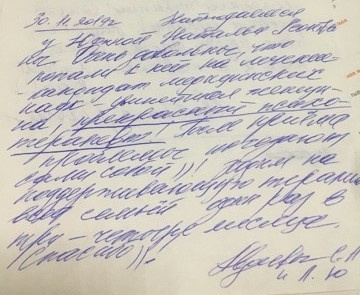 30.11.2019г Наблюдаемся
у Южной Натальи
Мы очень довольны, что
попали к ней на лечение
кандидат медицинских
наук, душевнейшая женщи-
на, прекрасный психо-
терапевт! После приёма
проблемы
сами собой))! Ходим на
поддерживающую терапию
всей семьёй один раз в
три - четыре месяца.
Спасибо)).
С.П
и Л.Ю